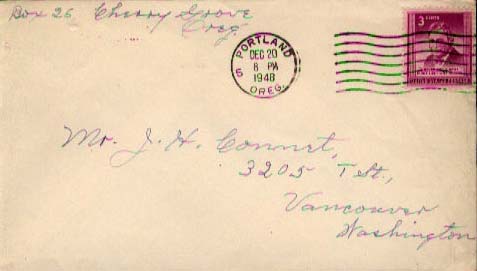 Box 26 Cherry Grove
Oreg.
PORTLAND
DEC 20
8 PM
1948
5
OREG.
3 CENTS
Mr. J. H. Connet,
3205 T St.,
Vancouver
Washington